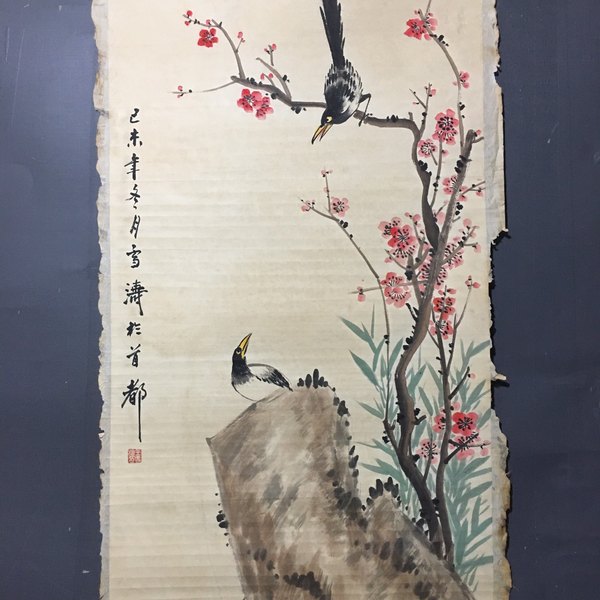 己未年冬月雪濤於首都